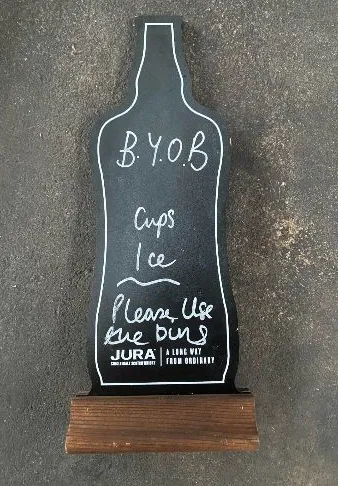 B.Y.O.B
Cups
Ice
Please Use
the bins
JURA
SINGLE MALT SCOTCH WHISKY
A LONG WAY
FROM ORDINARY